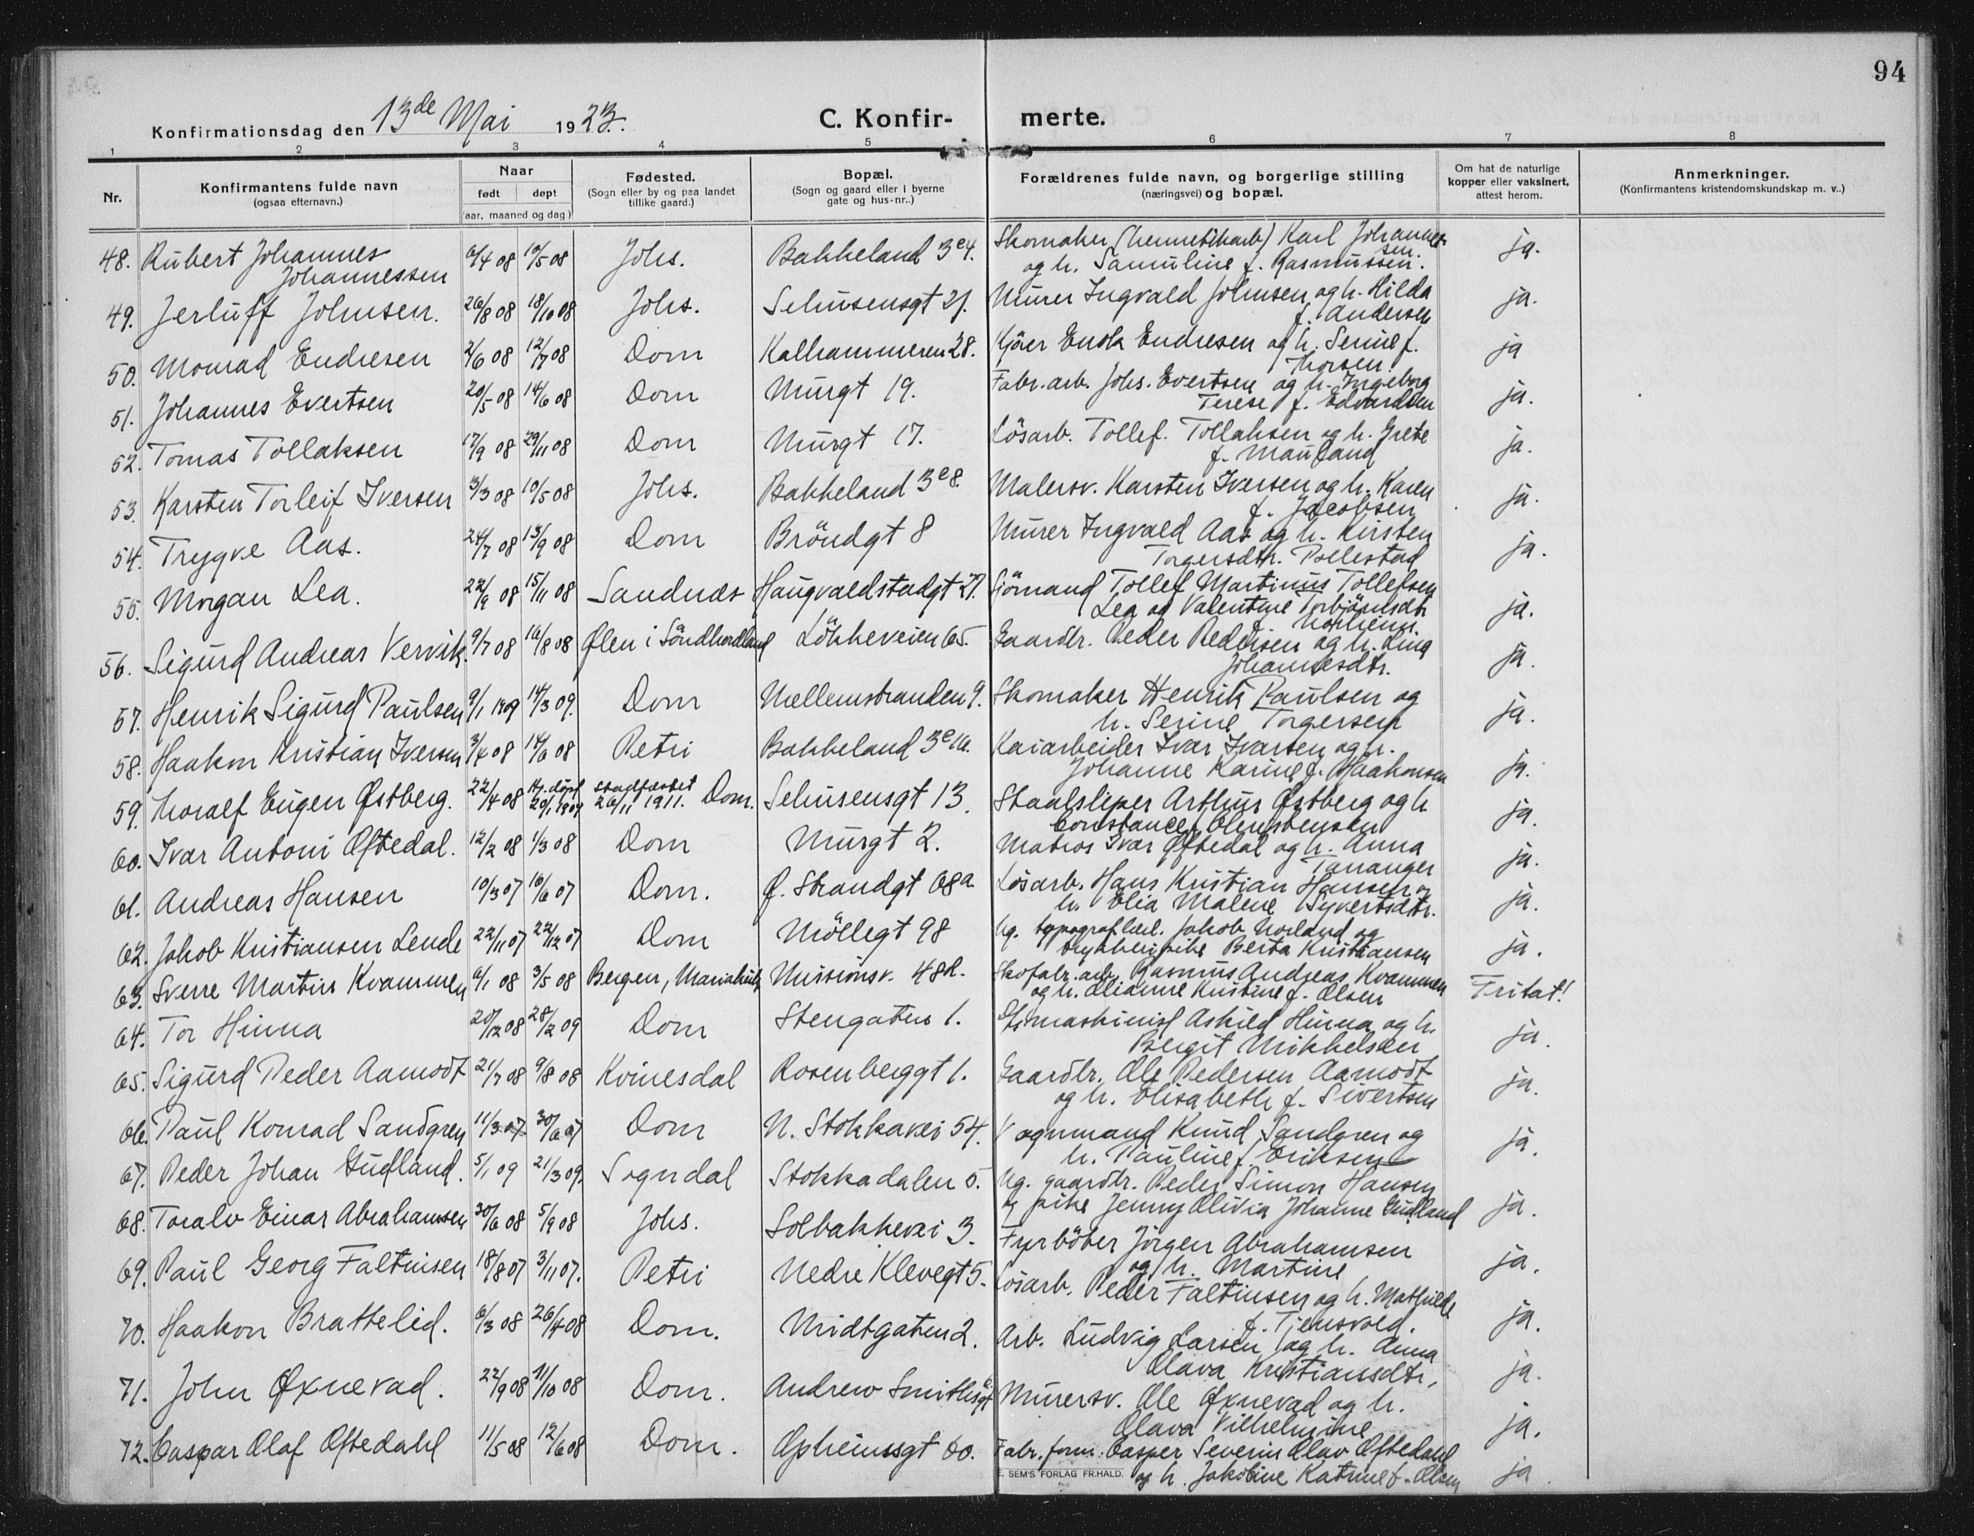 94
Konfirmationsdag den 13de Mai 1923. C. Konfir- merte.
1 2 3 4 5 6 7 8
Nr. Konfirmantens fulde navn (ogsaa efternavn.) Naar født døpt (aar, maaned og dag) Fødested. (Sogn eller by og paa landet tillike gaard.) Bopæl. (Sogn og gaard eller i byerne gate og hus-nr..) Forældrenes fulde navn, og borgerlige stilling (næringsvei) og bopæl. Om hat de naturlige kopper eller vaksinert, attest herom. Anmerkninger. (Konfirmantens kristendomskundskap m. v..)
48. Rubert Johannes 6/4 08 10/5 08 Johs. Bakkeland 3 e 4. Skomaker (hermetikarb) Karl Johannes- ja.
Johannessen og h. Samuline f. Rasmussen.
49. Jerluff Johnsen. 26/8 08 18/10 08 Johs. Sehusensgt 21. Murer Ingvald Johnsen og h. Hilda ja.
f. Andersen
50. Monrad Endresen 2/6 08 12/7 08 Dom Kalhammeren 28. Kjörer Enok Endresen og h. Serine f. ja
Thorsen.
51. Johannes Evertsen 20/5 08 14/6 08 Dom Murgt 19. Fabr. arb. Johs. Evertsen og h. Ingeborg ja.
Terese f. Edvardsen
52. Tomas Tollaksen 17/9 08 29/11 08 Dom Murgt 17. Lösarb. Tollef. Tollaksen og h. Grete ja.
f. Mauland
53. Karsten Torleif Iversen 3/3 08 10/5 08 Johs. Bakkeland 3 e 8. Malersv. Karsten Iversen og h. Karen ja.
f. Jacobsen
54. Trygve Aas. 24/7 08 13/9 08 Dom Bröndgt 8 Murer Ingvald Aas og h. Kirsten ja.
Torgersdtr. Pollestad
55. Morgan Lea. 22/9 08 15/11 08 Sandnes Haugvaldstadgt 29. Sjömand Tollef Martinus Tollefsen ja.
Lea og Valentine Torbjörnsdtr
56. Sigurd Andreas Vervik. 9/7 08 16/8 08 Ølen i Söndhordland Lökkeveien 65. Gaardbr. Peder Pedersen og h. Lina ja.
Johannesdtr.
57. Henrik Sigurd Paulsen 9/1 1909 14/3 09. Dom Mellemstranden 9. Skomaker Henrik Paulsen og ja.
h. Serine Torgersen
58. Haakon Kristian Iversen 3/4 08 14/6 08 Petri Bakkeland 3 e 16. Kaiarbeider Ivar Ivarsen og h. ja.
Johanne Karine f. Haakonsen
59. Thoralf Eugen Østberg. 22/4 08 Hj. döpt 20/1 1909 stadfæstet 26/11 1911. Dom. Sehusensgt 13. Staalsliper Arthur Østberg og h ja.
Constance f. Clenstensen
60. Ivar Antoni Oftedal. 12/2 08 1/3 08 Dom Murgt 2. Matros Ivar Oftedal og h. Anna ja.
Tananger
61. Andreas Hansen 10/3 07 16/6 07 Dom. Ø. Strandgt 68a. Lösarb. Hans Kristian Hansen og ja.
h. Elia Malene Syvertsdtr.
62. Jakob Kristiansen Lende 22/11 07 22/12 07 Dom Möllegt 98 Ug. typograflærl. Jakob Norland og ja.
trykkeripike Berta Kristiansen
63. Sverre Martin Kvammen 6/1 08 3/5 08 Bergen, Mariakirk Missionsv. 48d. Skofabr. arb. Rasmus Andreas Kvammen Fritat!
og h. Olianne Kristine f. Olsen
64. Tor Hinna 20/12 08 28/2 09 Dom Stengaten 1. Stmaskinist Askild Hinna og h. ja.
Bergit Mikkelsen
65. Sigurd Peder Aamodt 21/7 08 9/8 08 Kvinesdal Rosenberggt 1. Gaardbr. Ole Pedersen Aamodt ja.
og h. Elisabeth f. Sivertsen
66. Paul Konrad Sandgren 11/3 07 30/6 07 Dom N. Stokkavei 54. Vognmand Knud Sandgren og ja.
h. Pauline f. Eriksen
67. Peder Johan Gudland. 5/1 09 21/3 09. Sogndal Stokkadalen 5. Ug. gaardbr. Peder Simon Hansen ja.
og pike Jenny Olivia Johanne Gudland
68. Toralv Einar Abrahamsen 30/6 08 5/9 08 Johs. Solbakkevei 3. Fyrböter Jörgen Abrahamsen ja.
og h. Martine
69. Paul Georg Faltinsen 18/8 07 3/11 07. Petri Nedre Klevegt 5. Lösarb. Peder Faltinsen og h. Mathilde ja.
f. Tjensvold.
70. Haakon Brattelid. 6/3 08 26/4 08 Dom. Midtgaten 2. Arb. Ludvig Larsen og h. Anna ja.
Olava Kristiansdtr,
71. John Øxnevad. 22/9 08 11/10 08 Dom. Andrew Smithsgt Murersv. Ole Øxnevad og h. ja.
Olava Vilhelmine
72. Caspar Olaf Oftedahl 11/5 08 12/6 08 Dom. Opheimsgt 60. Fabr. form. Casper Severin Olav Oftedahl ja
og h. Jakobine Katrine f. Olsen
E. SEM'S FORLAG FR.HALD.